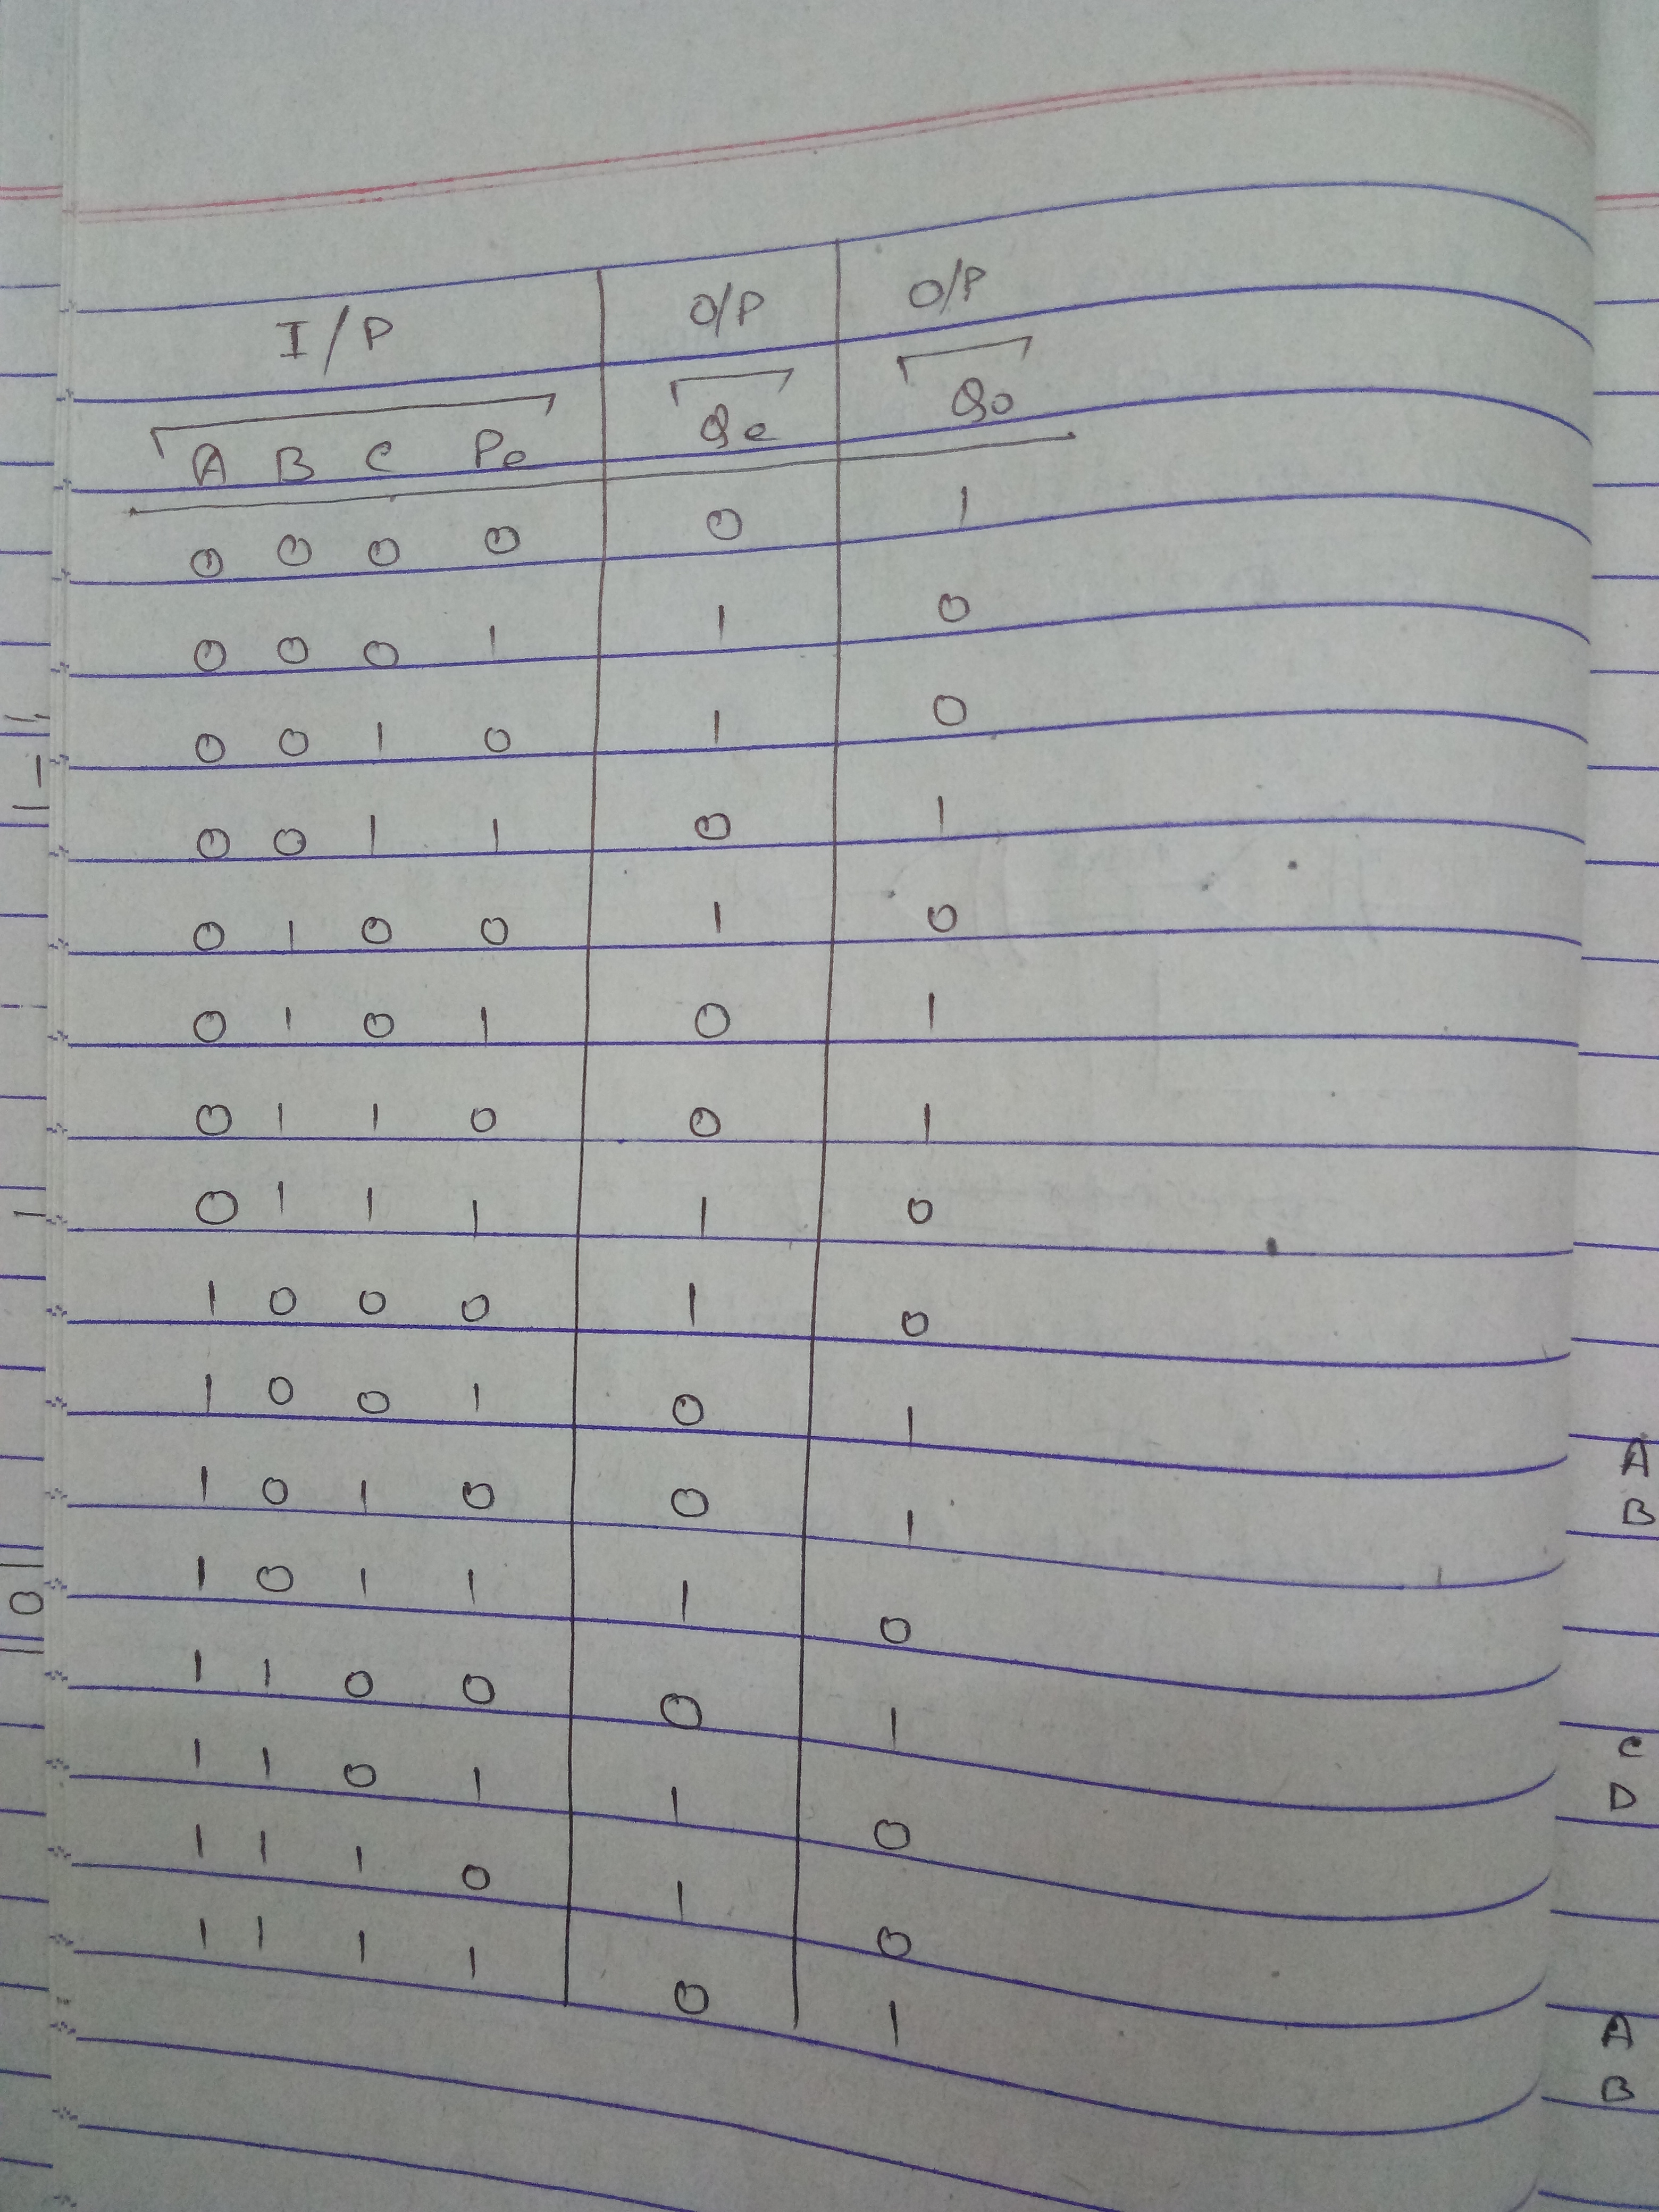 I/P O/P O/P
A B C Pe Qe Qo
0 0 0 0 0 1
0 0 0 1 1 0
0 0 1 0 1 0
0 0 1 1 0 1
0 1 0 0 1 0
0 1 0 1 0 1
0 1 1 0 0 1
0 1 1 1 1 0
1 0 0 0 1 0
1 0 0 1 0 1
1 0 1 0 0 1
1 0 1 1 1 0
1 1 0 0 0 1
1 1 0 1 1 0
1 1 1 0 1 0
1 1 1 1 0 1
1
0
A
B
C
D
A
B